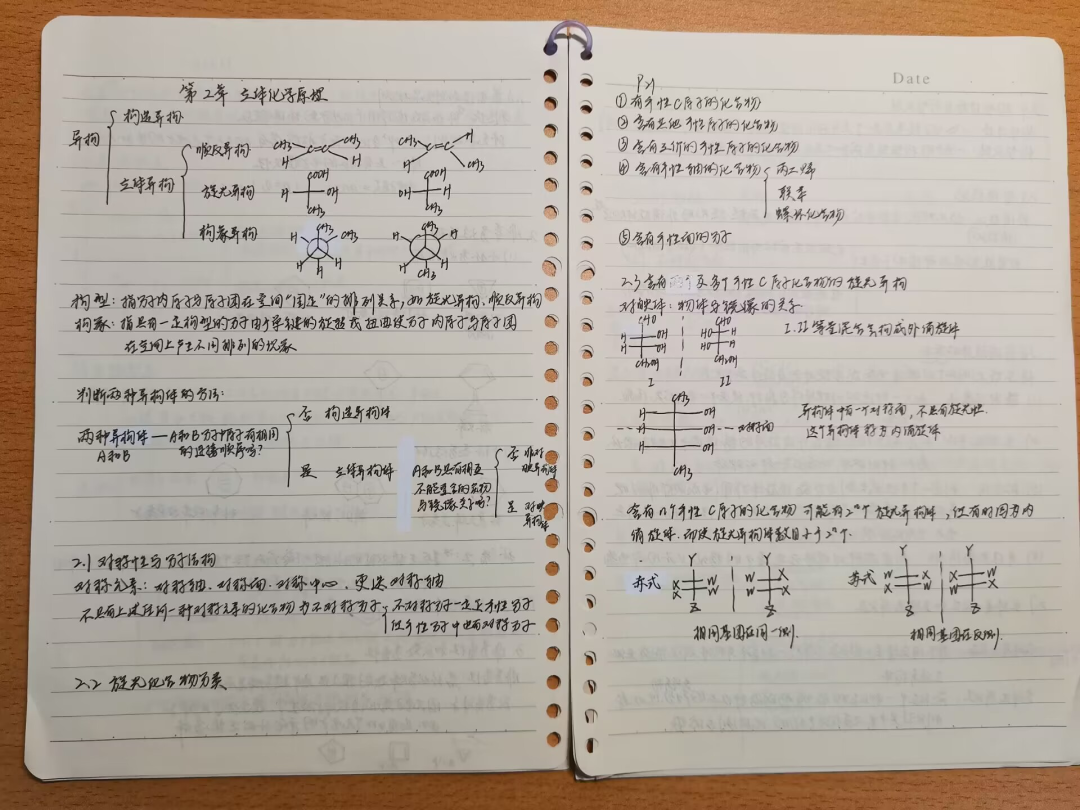 第2章 立体化学原理
异构
构造异构
立体异构
顺反异构 CH3 C=C CH3 H H CH3 C=C H H CH3
旋光异构 COOH H OH CH3 COOH OH H CH3
构象异构 CH3 H CH3 H H H CH3 H H H H CH3
构型：指分子内原子均原子团在空间“固定”的排列关系，如旋光异构、顺反异构
构象：指具有一定构型的分子由于单键的旋转或扭曲使分子内原子与原子团
在空间上产生不同排列的现象
判断两种异构体的方法：
两种异构体
A和B
A和B分子中原子有相同
的连接顺序吗？
否 构造异构体
是 立体异构体
A和B具有相互
不能重合的实物
与镜像关系吗？
否 非对
映异构体
是 对映
异构体
2.1 对称性与分子结构
对称元素：对称轴、对称面、对称中心、更迭对称轴
不具有上述任何一种对称元素的化合物为不对称分子
不对称分子一定是手性分子
但手性分子中也有对称分子
2.2 旋光化合物分类
Date
P21
① 有手性C原子的化合物
② 含有其他手性原子的化合物
③ 含有三价的手性原子的化合物
④ 含有手性轴的化合物
丙二烯
联苯
螺环化合物
⑤ 含有手性面的分子
2.3 含有两个及多个手性C原子化合物的旋光异构
对映体：物体与镜像的关系
CHO H OH H OH CH2OH
CHO HO H HO H CH2OH
I II
I、II等量混合构成外消旋体
CH3
H OH
H OH 对称面
H OH
CH3
异构体中有一个对称面，不具有旋光性
这个异构体称为内消旋体
含有n个手性C原子的化合物可能有2ⁿ个旋光异构体，但有时因为内
消旋体而使旋光异构体数目小于2ⁿ个.
赤式 Y X W X W Z Y W X W X Z
相同基团在同一侧.
苏式 Y W X X W Z Y X W W X Z
相同基团在反侧.